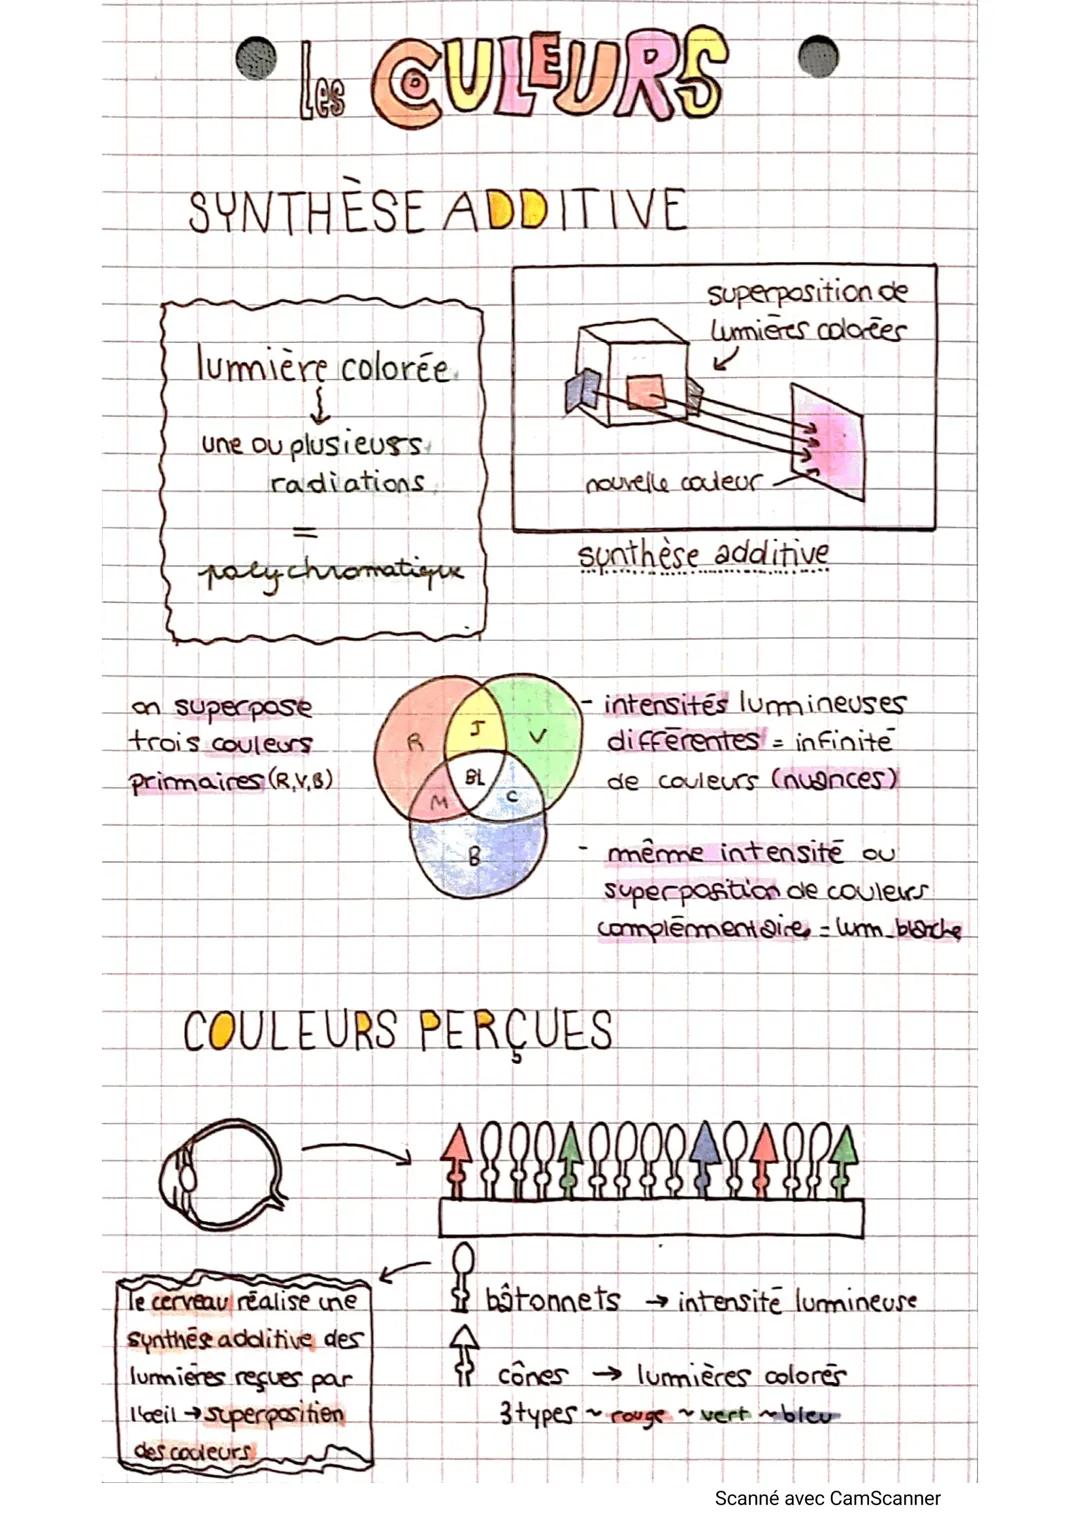 Les COULEURS
SYNTHÈSE ADDITIVE
lumière colorée
une ou plusieurs
radiations
=
polychromatique
superposition de
lumières colorées
nouvelle couleur
synthèse additive
on superpose
trois couleurs
primaires (R,V,B)
R
J
V
BL
M
C
B
- intensités lumineuses
différentes = infinité
de couleurs (nuances)
- même intensité ou
superposition de couleurs
complémentaires = lum. blanche
COULEURS PERÇUES
le cerveau réalise une
synthèse additive des
lumières reçues par
l'œil → superposition
des couleurs
bâtonnets → intensité lumineuse
cônes → lumières colorés
3 types ~ rouge ~ vert ~ bleu
Scanné avec CamScanner